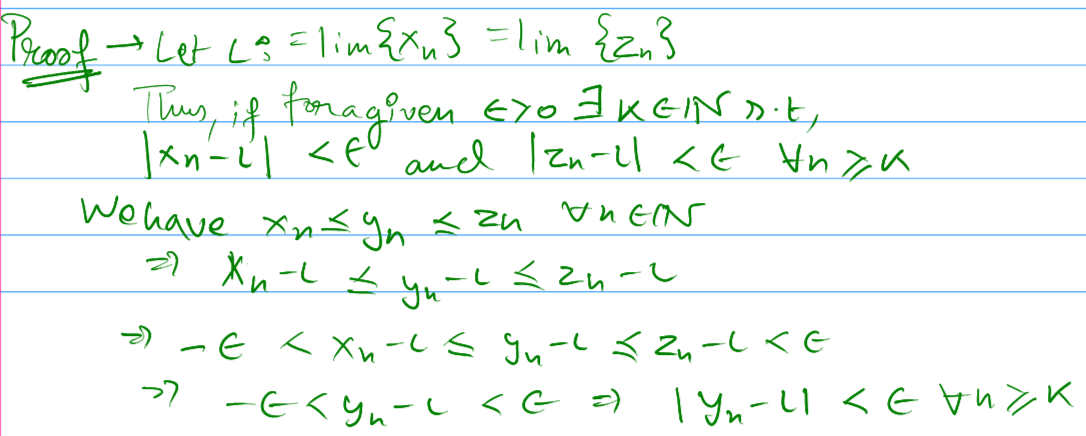 Proof → Let L := lim{xₙ} = lim {zₙ}
Thus, if for a given ϵ>0 ∃ K∈ℕ s.t,
|xₙ-L| <ϵ and |zₙ-L| <ϵ ∀n ≥ K
We have xₙ ≤ yₙ ≤ zₙ ∀n∈ℕ
⇒ xₙ-L ≤ yₙ-L ≤ zₙ-L
⇒ -ϵ < xₙ-L ≤ yₙ-L ≤ zₙ-L < ϵ
⇒ -ϵ < yₙ-L < ϵ ⇒ |yₙ-L| < ϵ ∀n ≥ K